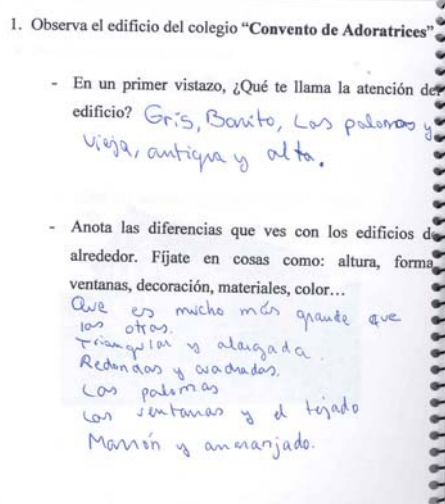 1. Observa el edificio del colegio “Convento de Adoratrices”
- En un primer vistazo, ¿Qué te llama la atención del
edificio? Gris, Bonito, Las palomas y
vieja, antigua y alta.
- Anota las diferencias que ves con los edificios de
alrededor. Fíjate en cosas como: altura, forma,
ventanas, decoración, materiales, color…
Que es mucho más grande que
los otros.
Triangular y alargada.
Redondas y cuadradas.
Las palomas
Las ventanas y el tejado
Marrón y anaranjado.